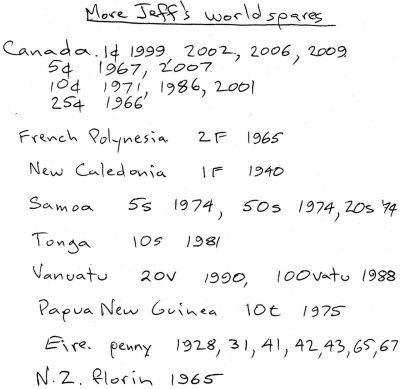 More Jeff's world spares
Canada. 1¢ 1999, 2002, 2006, 2009
5¢ 1967, 2007
10¢ 1971, 1986, 2001
25¢ 1966
French Polynesia 2F 1965
New Caledonia 1F 1940
Samoa 5s 1974, 50s 1974, 20s '74
Tonga 10s 1981
Vanuatu 20V 1990, 100vatu 1988
Papua New Guinea 10t 1975
Eire. penny 1928, 31, 41, 42, 43, 65, 67
N.Z. florin 1965